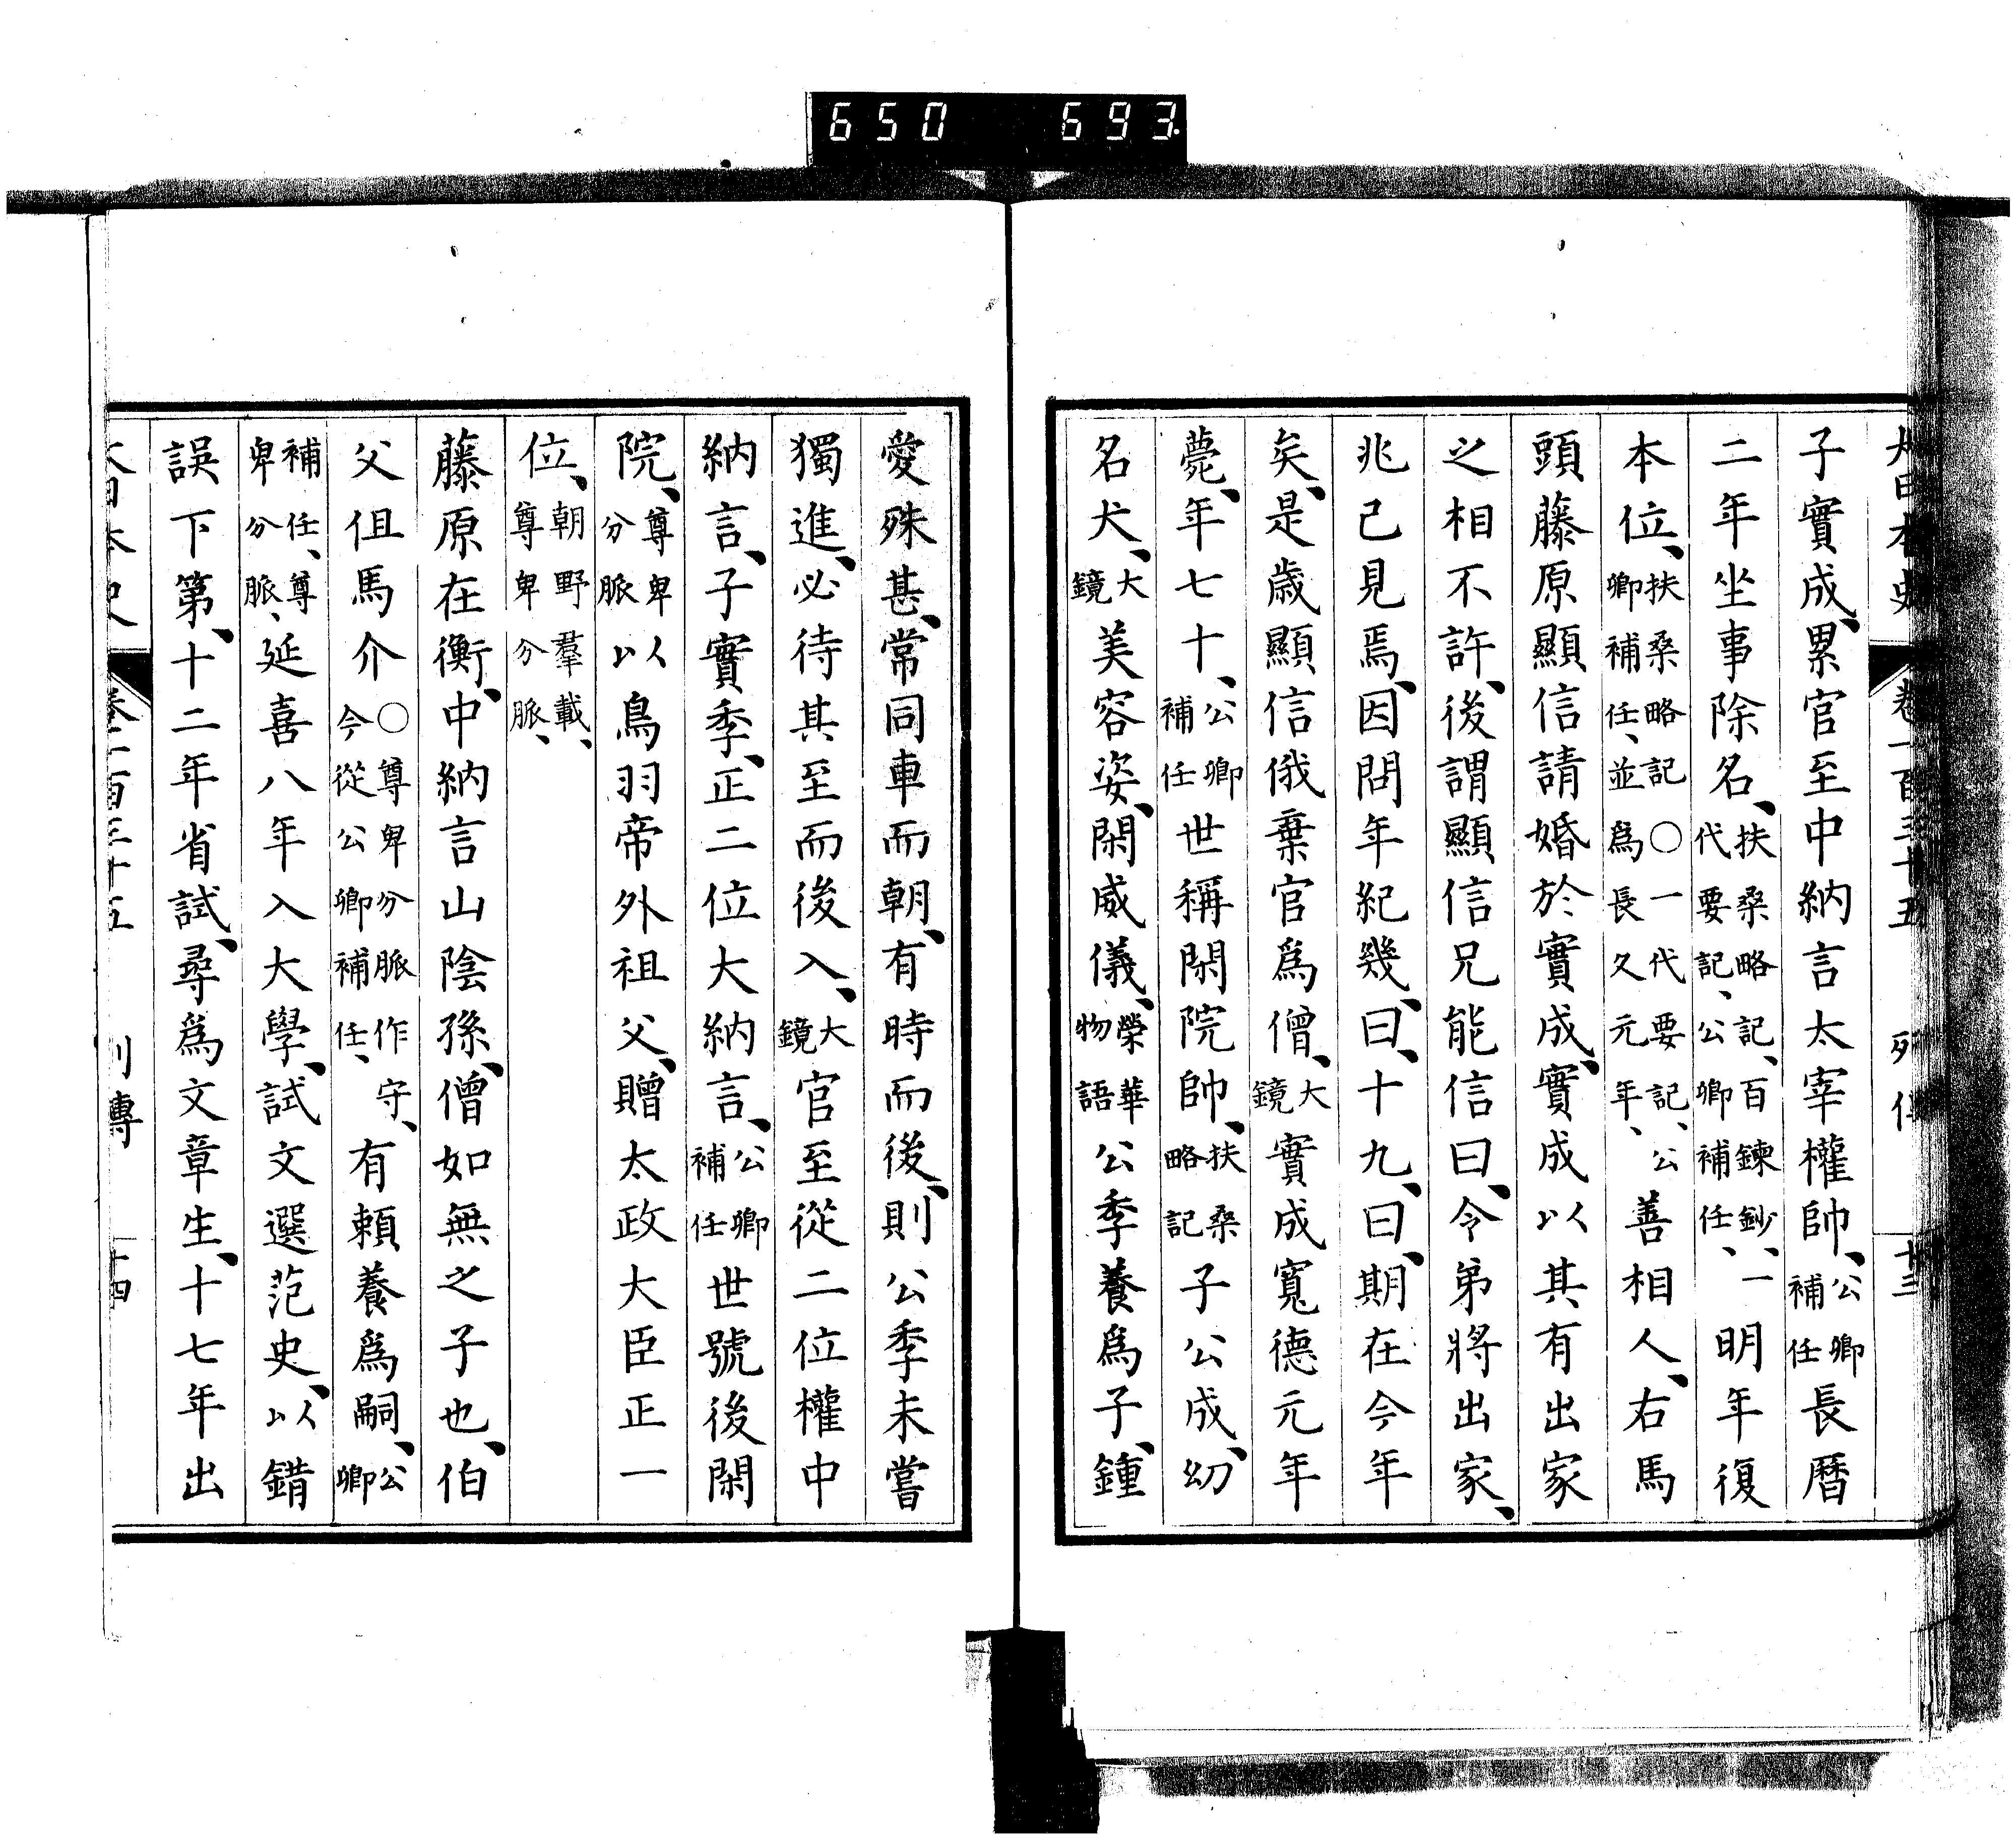 650 693.
大日本史 卷一百三十五 列傳 十三
子實成、累官至中納言太宰權帥、公卿補任長曆
二年坐事除名、扶桑略記、百鍊鈔、一代要記、公卿補任、明年復
本位、扶桑略記〇一代要記、公卿補任、並爲長久元年、善相人、右馬
頭藤原顯信請婚於實成、實成以其有出家
之相不許、後謂顯信兄能信曰、令弟將出家、
兆已見焉、因問年紀幾、曰、十九、曰、期在今年
矣、是歲顯信俄棄官爲僧、大鏡實成寬德元年
薨、年七十、公卿補任世稱閑院帥、扶桑略記子公成、幼
名犬、大鏡美容姿、閑威儀、榮華物語公季養爲子、鍾
愛殊甚、常同車而朝、有時而後、則公季未嘗
獨進、必待其至而後入、大鏡官至從二位權中
納言、子實季、正二位大納言、公卿補任世號後閑
院、尊卑分脈以鳥羽帝外祖父、贈太政大臣正一
位、朝野羣載、尊卑分脈、
藤原在衡、中納言山陰孫、僧如無之子也、伯
父但馬介〇尊卑分脈作守、今從公卿補任、有賴養爲嗣、公卿
補任、尊卑分脈、延喜八年入大學、試文選范史、以錯
誤下第、十二年省試、尋爲文章生、十七年出
大日本史 卷一百三十五 列傳 十四